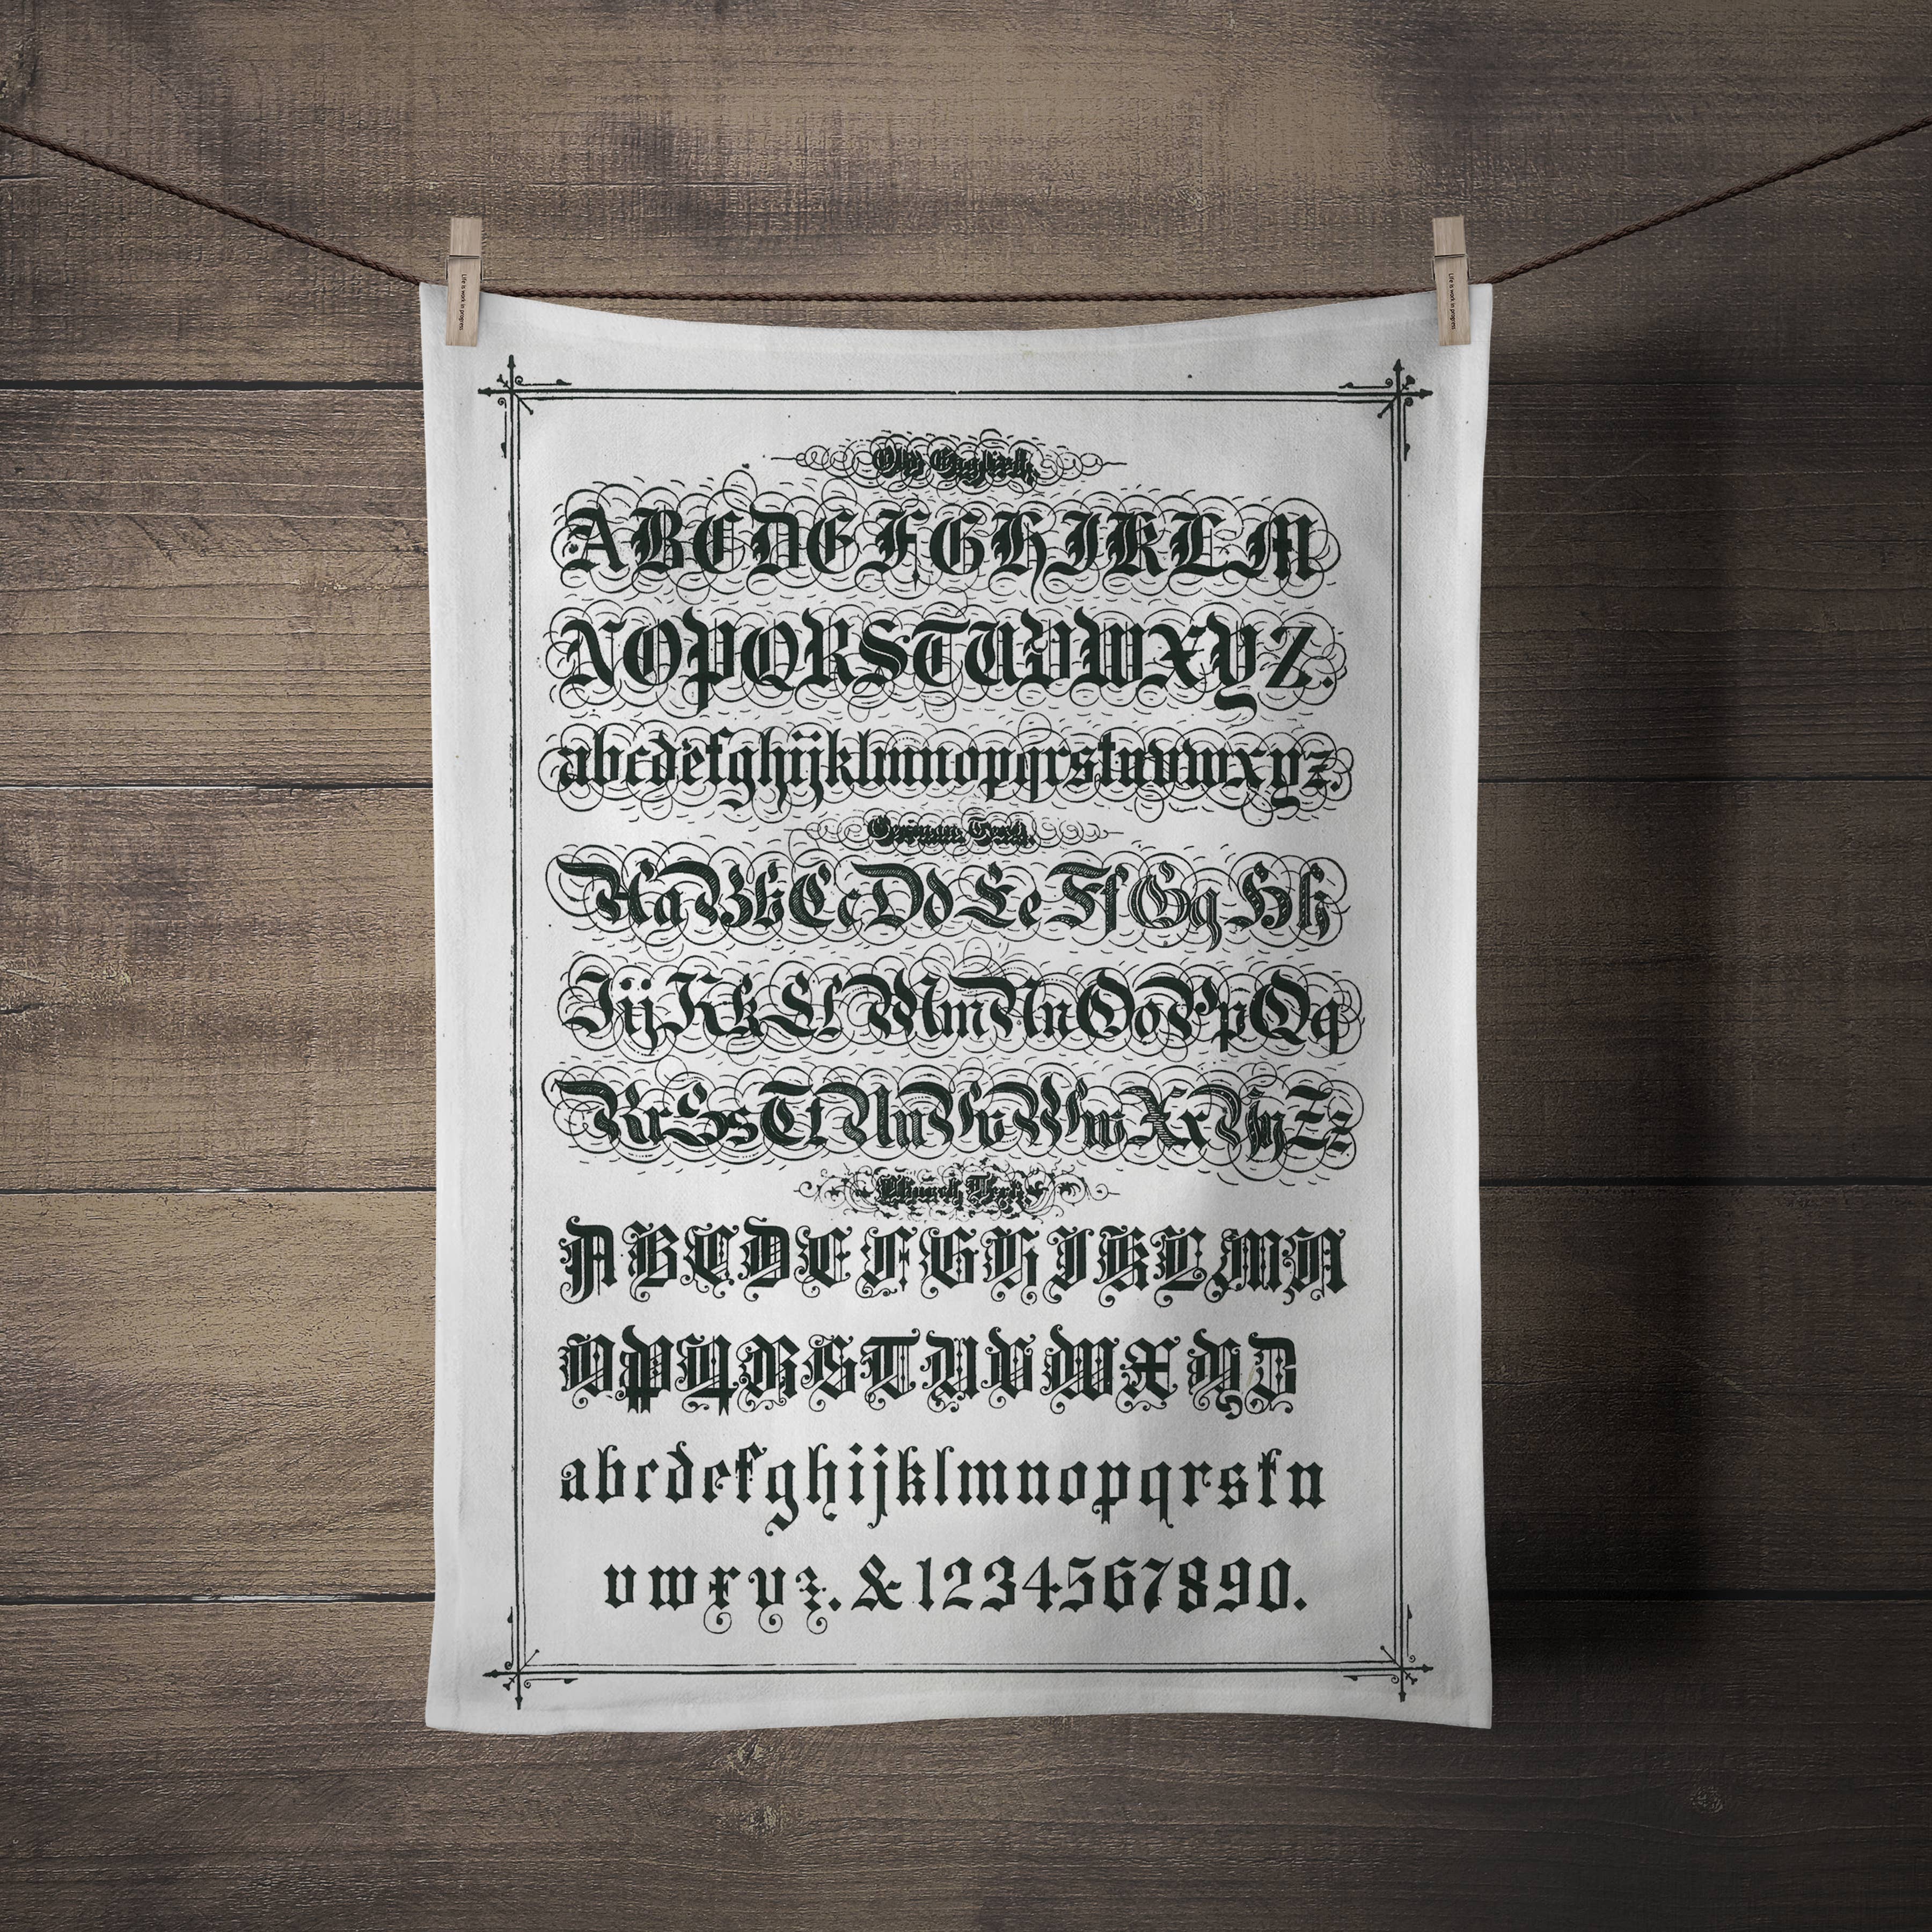 Life is work in progress.
Life is work in progress.
Old English.
ABCDEFGHIJKLM
NOPQRSTUVWXYZ.
abcdefghijklmnopqrstuvwxyz.
German Text.
AaBbCcDdEeFfGgHh
IijKkLlMmNnOoPpQq
RrSsTtUuVvWwXxYyZz
Church Text.
ABCDEFGHIKLMN
OPQRSTUVWXYZ
abcdefghijklmnopqrstu
vwxyz. & 1234567890.